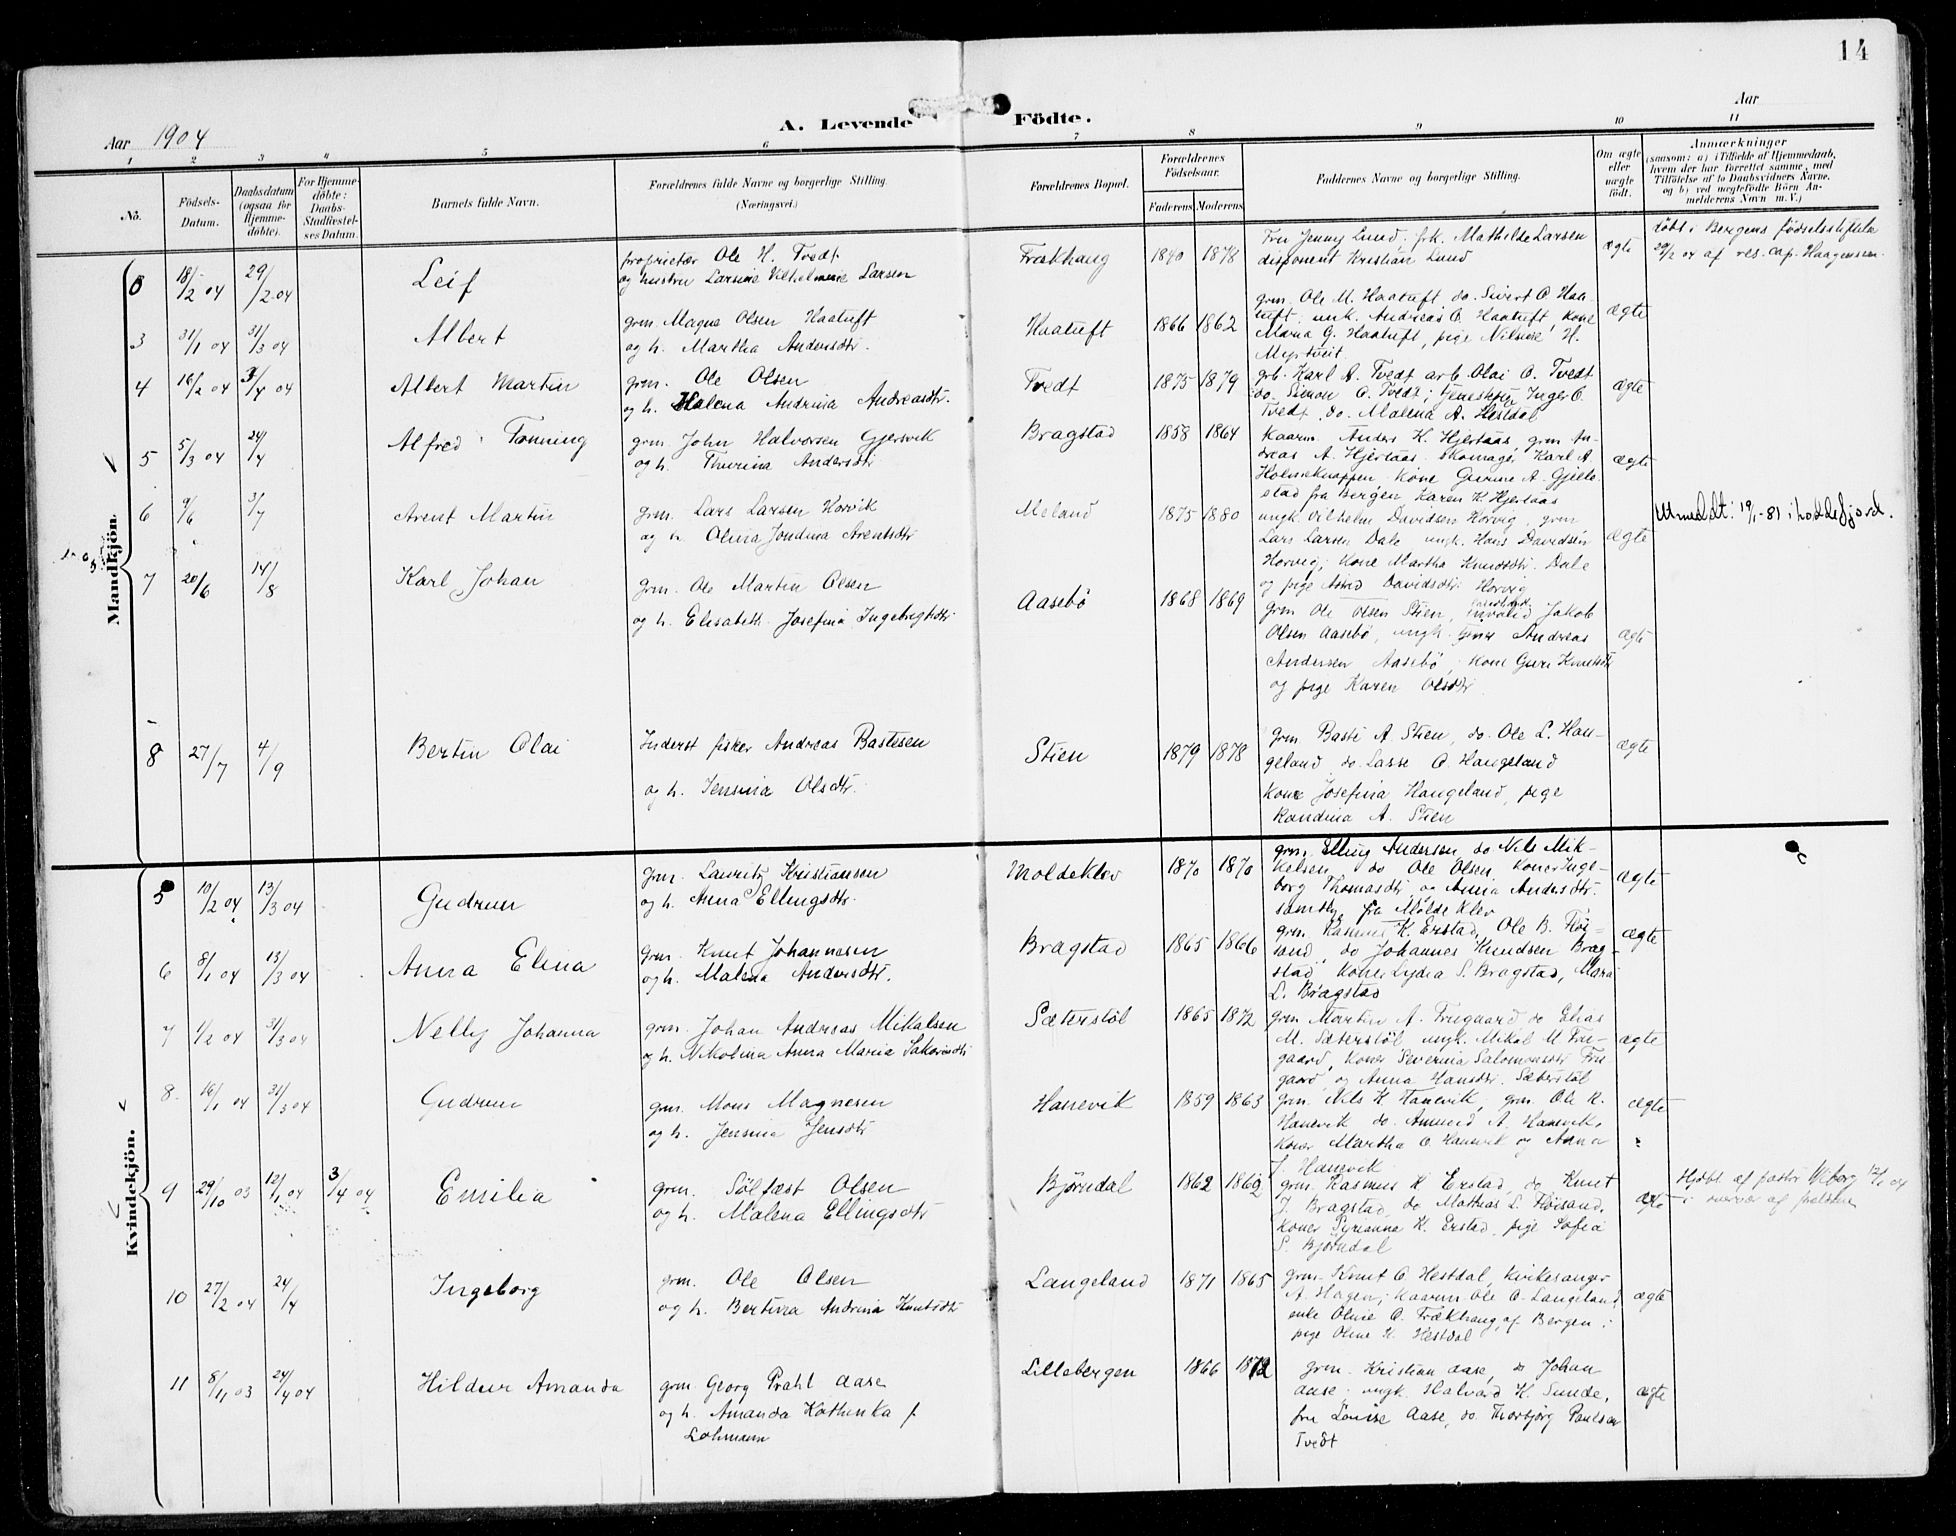 14
A. Levende Födte.
Aar 1904
Aar
1 2 3 4 5 6 7 8 9 10 11
No.
Födsels-Datum.
Daabsdatum (ogsaa for Hjemmedöbte).
For Hjemmedöbte: Daabs-Stadfæstelses Datum.
Barnets fulde Navn.
Forældrenes fulde Navne og borgerlige Stilling.
(Næringsvei.)
Forældrenes Bopæl.
Forældrenes Födselsaar.
Faderens Moderens
Faddernes Navne og borgerlige Stilling.
Om ægte eller uægte födt.
Anmærkninger
(saasom: a) i Tilfælde af Hjemmedaab, hvem der har forrettet samme, med Tilföielse af to Daabsvidners Navne, og b) ved uegtefödte Börn Anmelderens Navn m. V.)
Mandkjön.
18/2 04 29/2 04 Leif
proprietær Ole H. Tvedt
og hustru Larsine Vilhelmine Larsen
Frækhaug 1840 1878
Fru Jenny Lund, frk. Mathilde Larsen
disponent Kristian Lund
ægte
döbt i Bergens fødselsstiftelse
29/2 04 af res. cap. Haagensen
3 31/1 04 31/3 04 Albert
grm. Magne Olsen Haatuft
og h. Martha Andersdtr.
Haatuft 1866 1862
grm. Ole M. Haatuft, do. Sivert O. Haa-
tuft, ungk. Andreas O. Haatuft, kone
Maria G. Haatuft, pige Nilsine H.
Mjøtveit.
ægte
4 16/2 04 3/4 04 Albert Martin
grm. Ole Olsen
og h. Malena Andrina Andreasdtr.
Tvedt 1875 1879
grb. Karl A. Tvedt arb. Olai O. Tvedt
do. Simon O. Tvedt; tjenestepige Inger O.
Tvedt do. Malena A. Hestdal
ægte
5 5/3 04 24/4 Alfred Tonning
grm. John Halvorsen Gjersvik
og h. Thurina Andersdtr
Bragstad 1858 1864
Kaarm. Anders K. Hjertaas, grm An-
dreas A. Hjertaas. Skomager Karl A.
Holmeknappen. Kone Gurine A. Gjelle-
stad fra Bergen Karen K. Hjertaas
ægte
6 9/6 3/7 Arent Martin
grm. Lars Larsen Horvik
og h. Olina Jondina Arentsdtr
Meland 1875 1880
ungk. Vilhelm Davidsen Horvig, grm
Lars Larsen Dale ungk. Hans Davidsen
Horvig; Kone Martha Knudsdtr. Dale
og pige Astrid Davidsdtr. Horvig
ægte
Utmeldt: 19/1-81 i Loddefjord.
7 20/6 14/8 Karl Johan
grm. Ole Martin Olsen
og h. Elisabeth Josefina Ingebrigtsdtr
Aasebö 1868 1869
grm Ole Olsen Stien, invalid Jakob
Olsen Aasebö, ungk. Andreas
Andersen Aasebö, kone Guri Knutsdtr
og pige Karen Olsdtr
ægte
8 27/7 4/9 Bertin Olai
Inderst fisker Andreas Bastesen
og h. Jensina Olsdtr.
Stien 1879 1878
grm. Basti A. Stien, do. Ole L. Hau-
geland do. Lasse O. Haugeland
kone Josefina Haugeland, pige
Randina A. Stien
ægte
Kvindekjön.
5 10/2 04 13/3 04 Gudrun
grm. Lauritz Kristiansen
og h. Anna Ellingsdtr.
Moldeklev 1870 1870
grm. Elling Andersen do Nils Mik-
kelsen, do Ole Olsen, koner Inge-
borg Thomasdtr og Anna Andersdtr.
samtl. fra Moldeklev
ægte
6 8/1 04 13/3 04 Anna Elina
grm. Knut Johannesen
og h. Malena Andersdtr.
Bragstad 1865 1866
grm. Rasmus K. Erstad, Ole B. Høi-
sand, do Johannes Knudsen Brag-
stad, Koner Lydia S. Bragstad, Mara
L. Bragstad
ægte
7 1/2 04 31/3 04 Nelly Johanna
grm. Johan Andreas Mikalsen
og h. Nikolina Anna Maria Jakobsdtr
Sæterstøl 1865 1872
grm Martin A. Frugaard do Elias
M. Sæterstøl ungk. Mikal M Fru-
gaard, koner Severina Salomonsdtr Fru
gaard og Anna Hansdtr. Sæterstøl
ægte
8 16/1 04 31/3 04 Gudrun
grm. Mons Magnesen
og h. Jensina Jensdtr
Hanevik 1859 1863
grm. Nils K Hanevik, grm. Ole K.
Hanevik do. Amund A. Hanevik,
koner Martha O. Hanevik og Anna
J. Hanevik
ægte
9 29/10 03 12/1 04 3/4 04 Emilia
grm. Sölfæst Olsen
og h. Malena Ellingsdtr
Bjørndal 1862 1862
grm. Rasmus K Erstad, do Knut
J. Bragstad, do Mathias L. Høisand.
koner Syrianna K. Erstad, pige Sofia
S. Bjørndal
ægte
Hjdbt. af pastor Wiborg 12/1 04
i nærvær af
10 27/2 04 24/4 Ingeborg
grm. Ole Olsen
og h. Bertina Andrina Knutsdtr
Langeland 1871 1865
grm. Knut O. Hestdal, kirkesanger
A. Hagen; kaarm. Ole O. Langeland
enke Oline O. Frækhaug, af Bergen;
pige Oline K. Hestdal
ægte
11 8/11 03 24/4 04 Hildur Amanda
grm Georg Prahl Aase
og h. Amanda Kathinka f.
Lohmann
Lillebergen 1866 1872
grm. Kristian Aase, do Johan
Aase, ungk. Halvard H. Sunde,
fru Louise Aase, do. Thorbjørg Paulsen
Tvedt
ægte